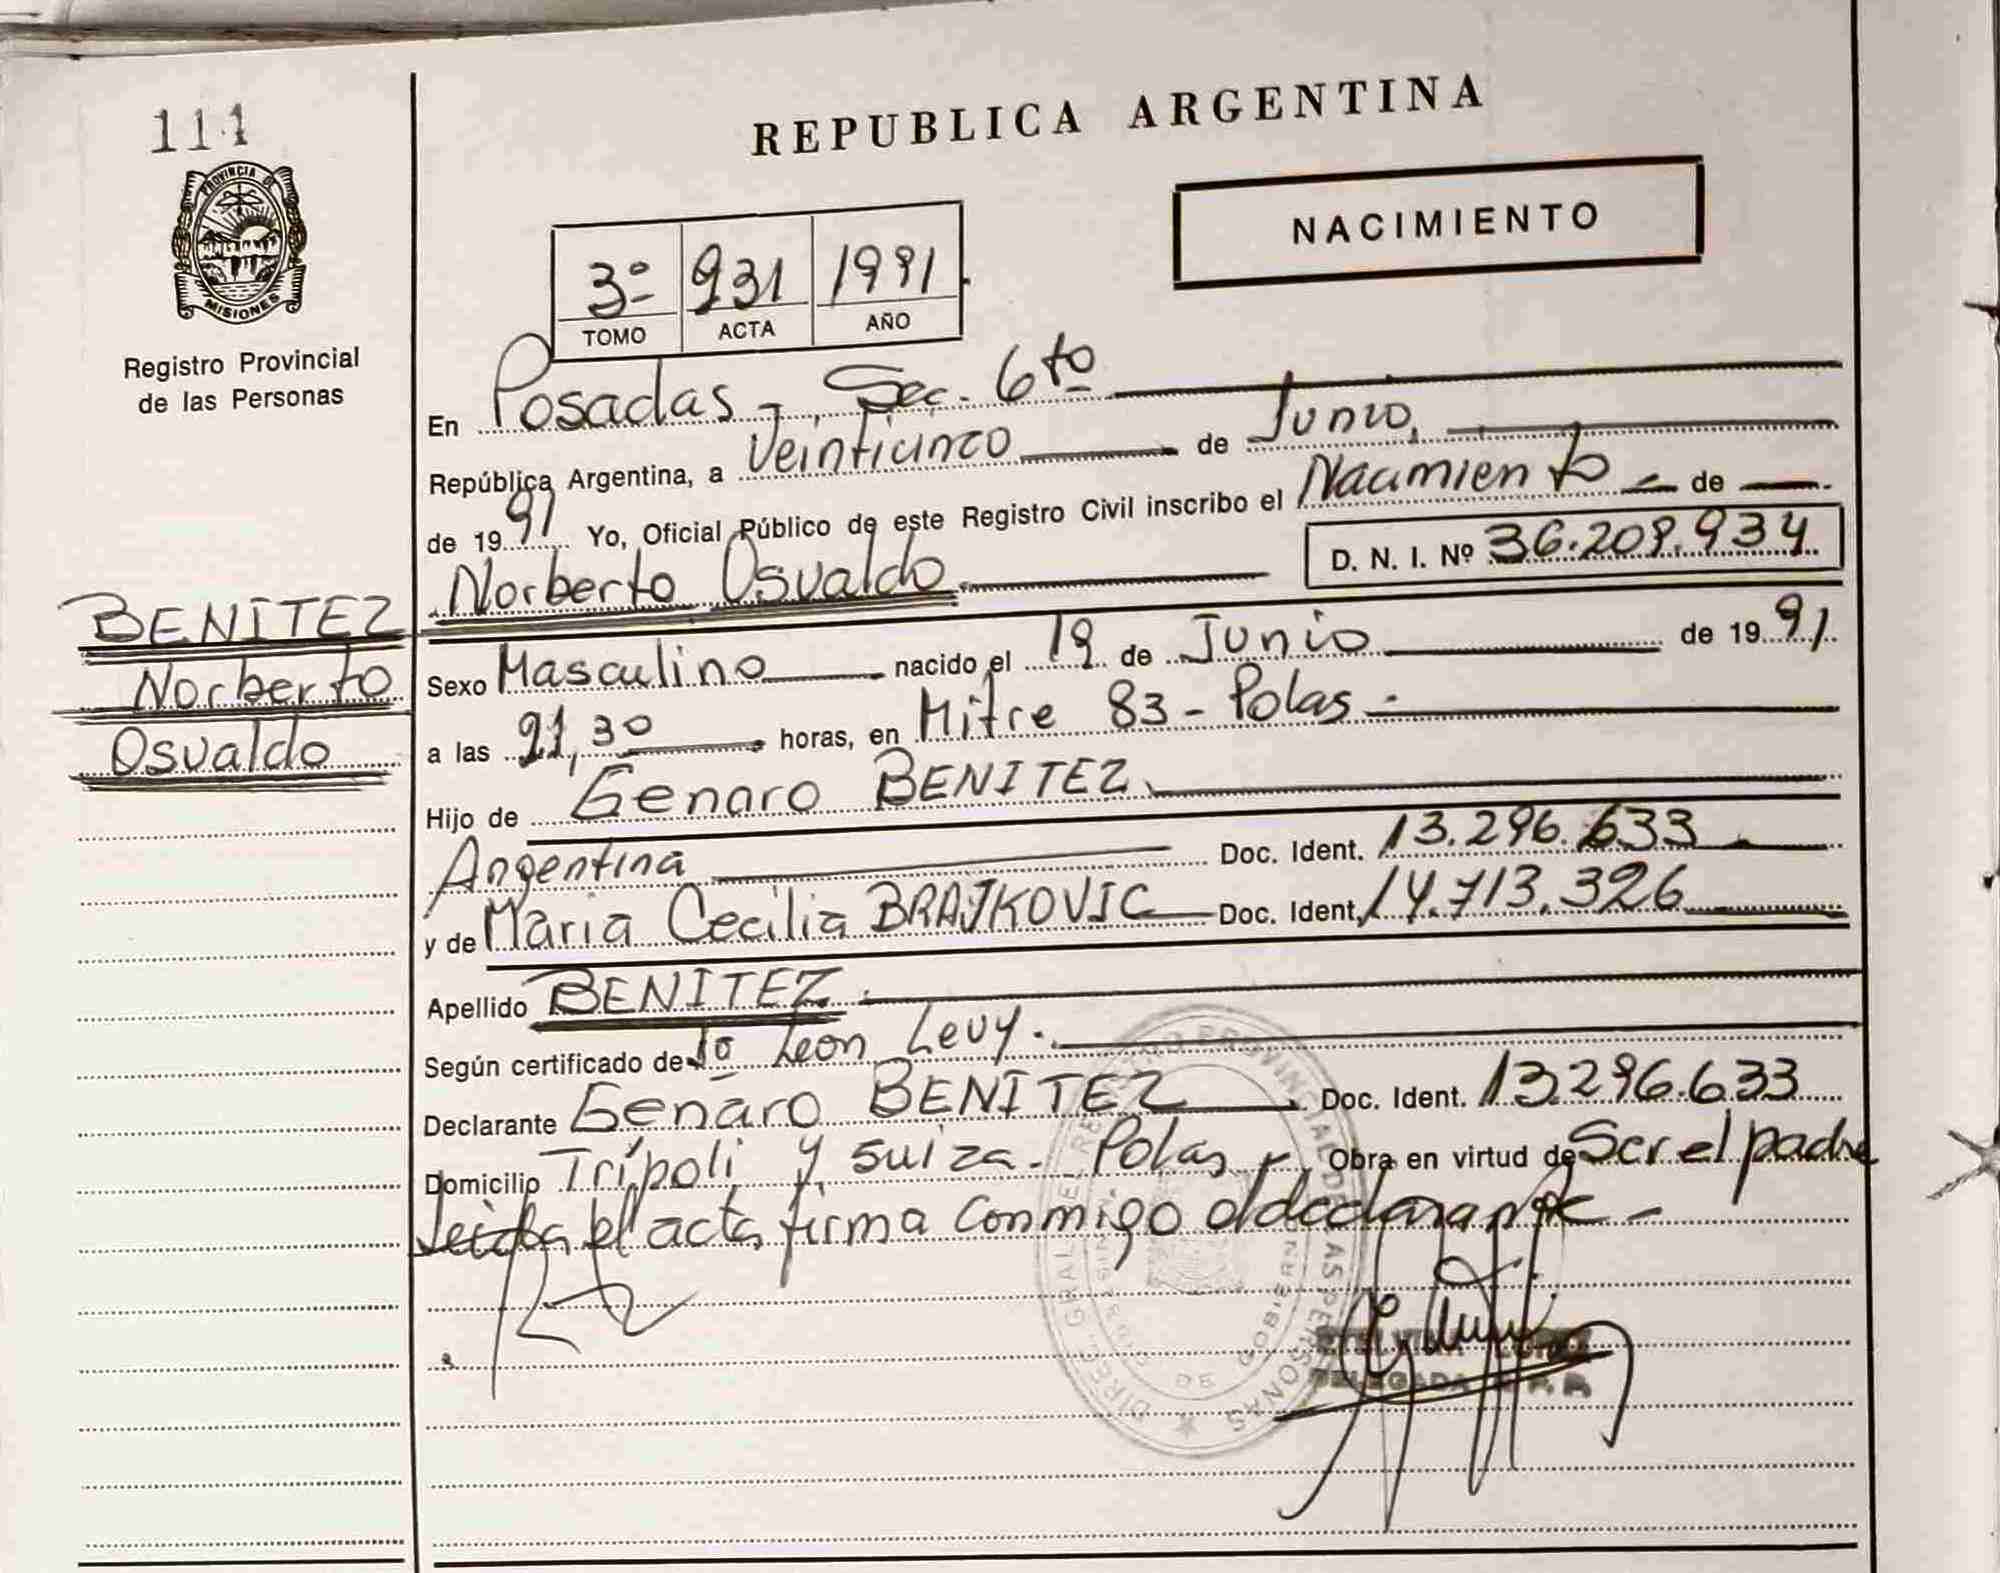 111
PROVINCIA DE
MISIONES
Registro Provincial
de las Personas
BENITEZ
Norberto
Osvaldo
REPUBLICA ARGENTINA
NACIMIENTO
3º 931 1991
TOMO ACTA AÑO
En Posadas - Sec. 6to
República Argentina, a Veinticinco de Junio,
de 1991 Yo, Oficial Público de este Registro Civil inscribo el Nacimiento de
Norberto Osvaldo. D. N. I. Nº 36.209.934
Sexo Masculino nacido el 19 de Junio de 1991
a las 21,30 horas, en Mitre 83 - Pdas -
Hijo de Genaro BENITEZ
Argentina Doc. Ident. 13.296.633
y de Maria Cecilia BRAJKOVIC Doc. Ident. 14.713.326
Apellido BENITEZ.
Según certificado de León Levy.
Declarante Genaro BENITEZ Doc. Ident. 13.296.633
Domicilio Trípoli y suiza - Pdas - Obra en virtud de Ser el padre
Leida el acta firma conmigo el declarante -
DIREC. GRAL. DEL REGISTRO PROVINCIAL DE LAS PERSONAS
DE GOBIERNO
DELEGADA